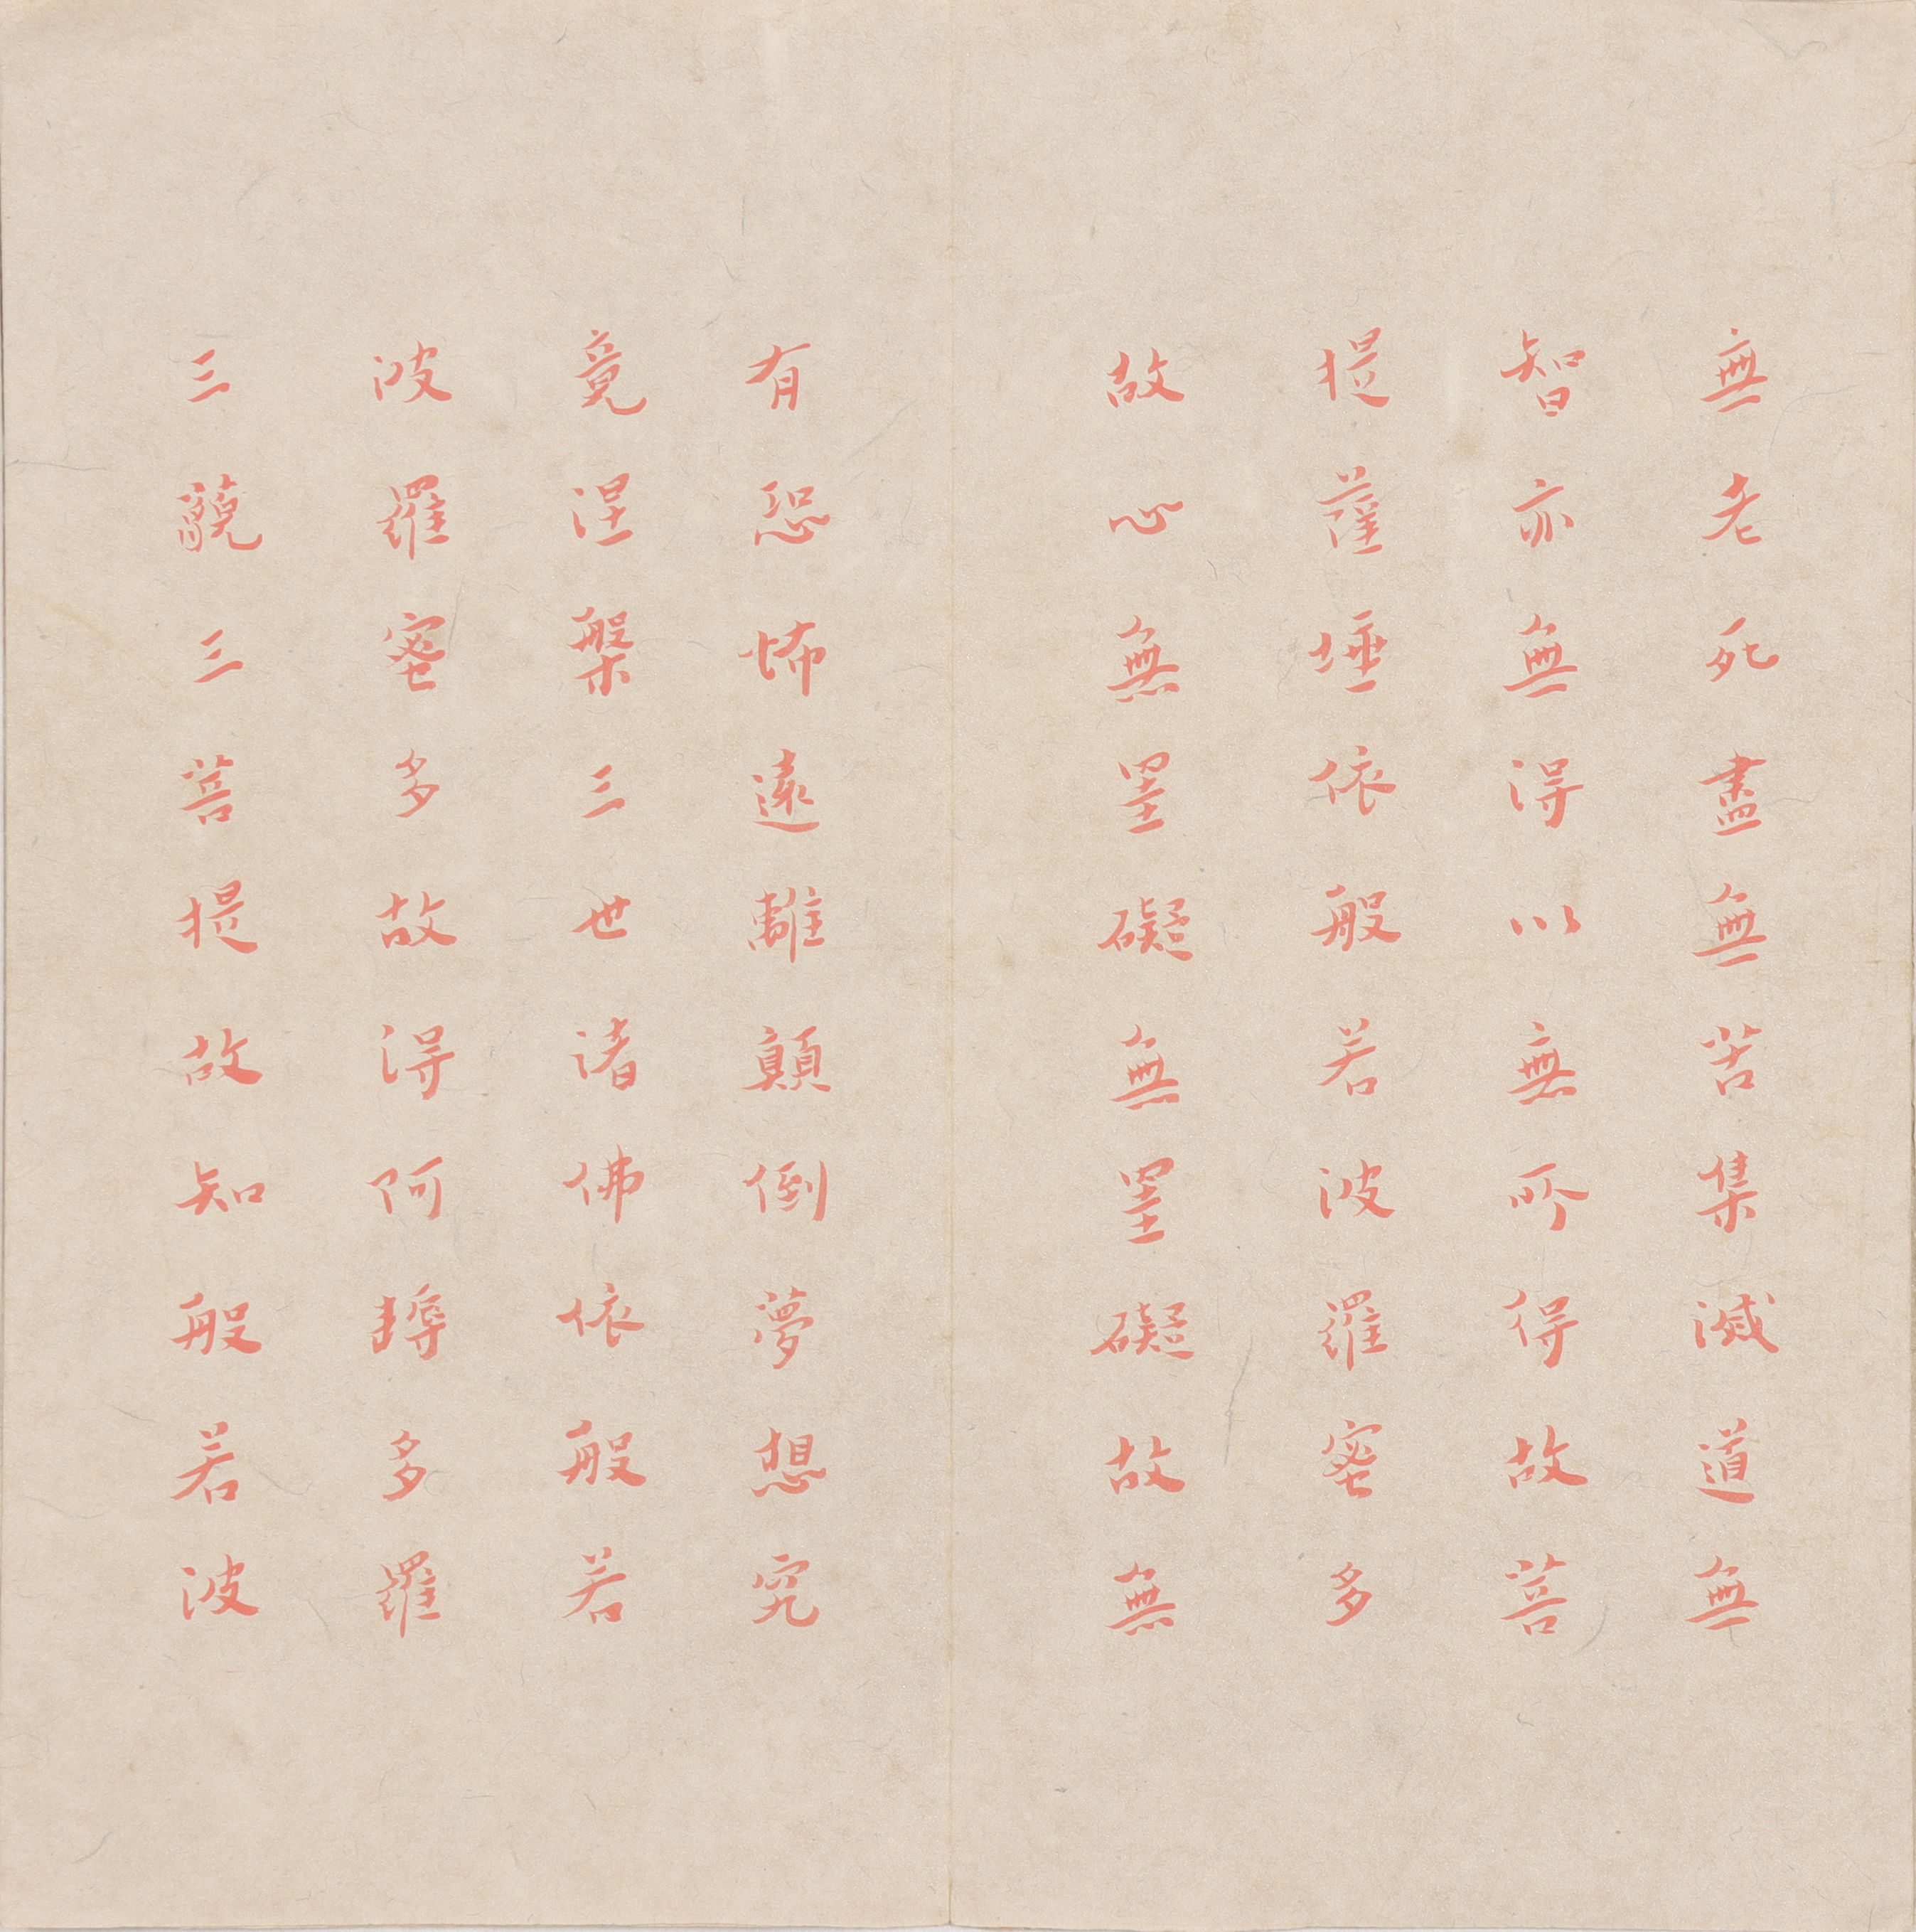 無老死盡無苦集滅道無
智亦無得以無所得故菩
提薩埵依般若波羅蜜多
故心無罣礙無罣礙故無
有恐怖遠離顛倒夢想究
竟涅槃三世諸佛依般若
波羅蜜多故得阿耨多羅
三藐三菩提故知般若波